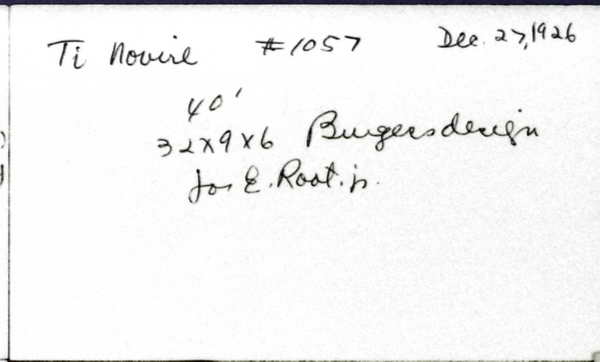 Ti Novire #1057 Dec. 27, 1926
40'
32x9x6 Burgess design
for E. Root. jr.